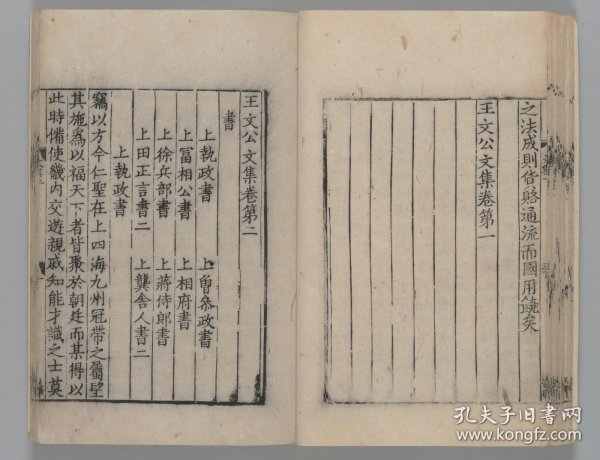 之法成則貨賂通流而國用饒矣
王文公文集卷第一
王文公文集卷第二
書
上執政書 上曾參政書
上富相公書 上相府書
上徐兵部書 上蔣侍郎書
上田正言書二 上龔舍人書二
上執政書
竊以方今仁聖在上四海九州冠帶之屬望
其施爲以福天下者皆聚於朝廷而某得以
此時備使畿内交遊親戚知能才識之士莫
孔夫子旧书网
www.kongfz.com